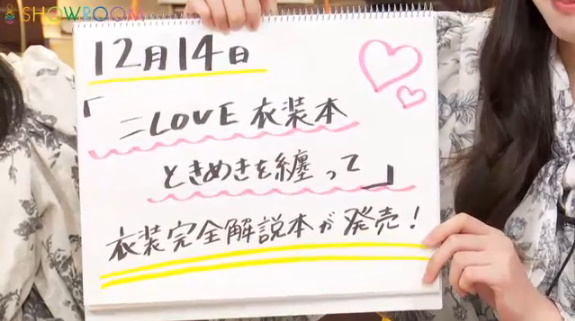 SHOWROOM
12月14日
「ニLOVE 衣装本
ときめきを纏って」
衣装完全解説本が発売!